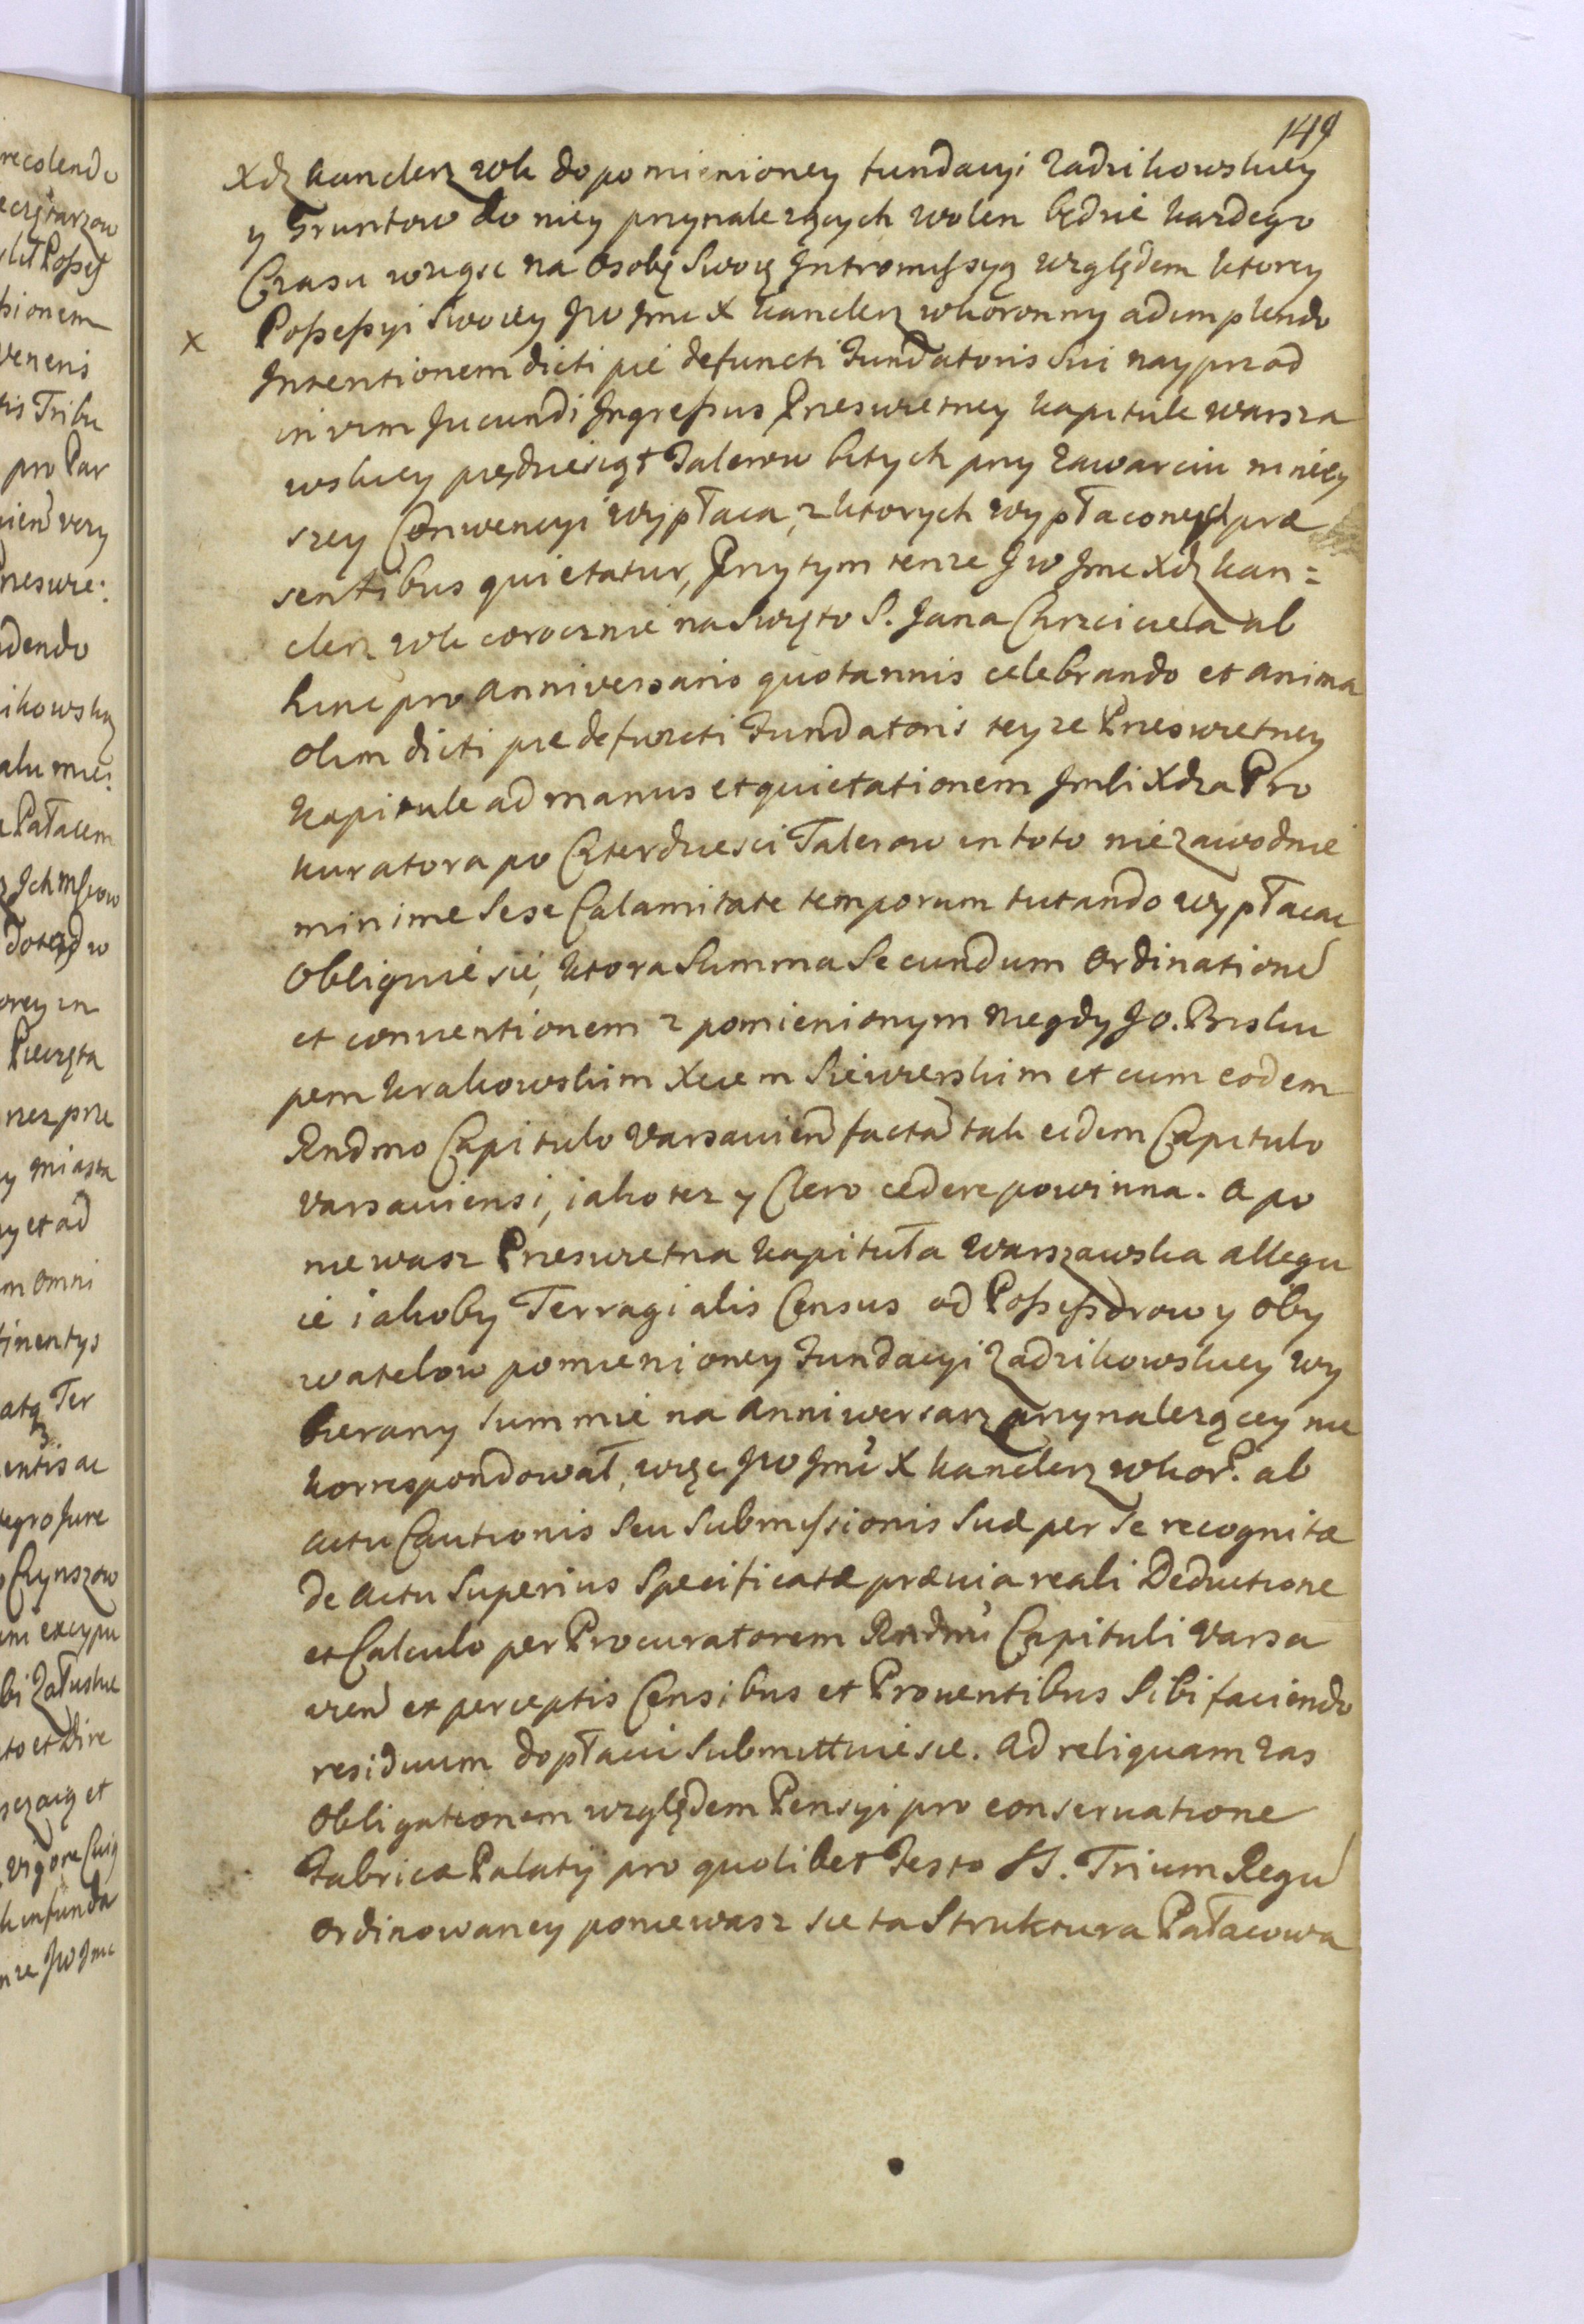 149
Xdz Kanclerz WK do pomienioney fundacyi Zadzikowskiey
y Gruntow do niey przynależących wolen będzie każdego
Czasu wziąsc na Osobę Swoię Jntromissyą względem ktorey
x Possessyi Swoiey JW Jmc X Kanclerz WKoronny adimplendo
Jntentionem dicti pié defuncti Fundatoris Sui nayprzod
in vim Jucundi Jngressus Przeswietney Kapitule Warsza
wskiey pięcdziesiąt Talerow bitych przy zawarciu niniey
szey Conwencyi wypłaca, z ktorych wypłaconych præ
sentibus quietatur, Przytym tenze JW Jmc Xdz Kan=
clerz WK corocznie na Swięto S. Jana Chrzciciela ab
hinc pro Anniversario quotannis celebrando et anima
olim dicti pie defuncti Fundatoris teyze Przeswietney
Kapitule ad manus et quietationem Jmci Xdza Pro
kuratora po Czterdziesci Talerow in toto niezawodnie
minime Sese Calamitate temporum tutando wypłacac
Obliguie się, ktora Summa Secundum Ordinationem̄
et conventionem z pomienionym niegdy JO. Bisku
pem Krakowskim Xciem Siewierskim et cum eodem
Rndmo Capitulo Varsavień facta tak eidem Capitulo
Varsaviensi, iako tez y Clero cedere powinna. A po
niewasz Przeswietna Kapituła Warszawska allegu
ie iakoby Terragialis Census od Possessorow y Oby
watelow pomienioney Fundacyi Zadzikowskiey wy
bierany Summie na Anniwersarz przynalezącey nie
korrespondował, więc JW Jmc X Kanclerz WKor. ab
actu Cautionis Seu Submissionis Suæ per Se recognitæ
de Actu Superius Specificatæ prævia reali Deductione
et Calculo per Procuratorem Rndmi Capituli Varsa
vień ex perceptis Censibus et Proventibus Sibi faciendo
residuum dopłacic Submittuie się. Ad reliquam zas
Obligationem względem Pensyi pro conservatione
Fabricæ Palatij pro quolibet Festo SS. Trium Regū
Ordinowaney poniewasz się ta Struktura Pałacowa